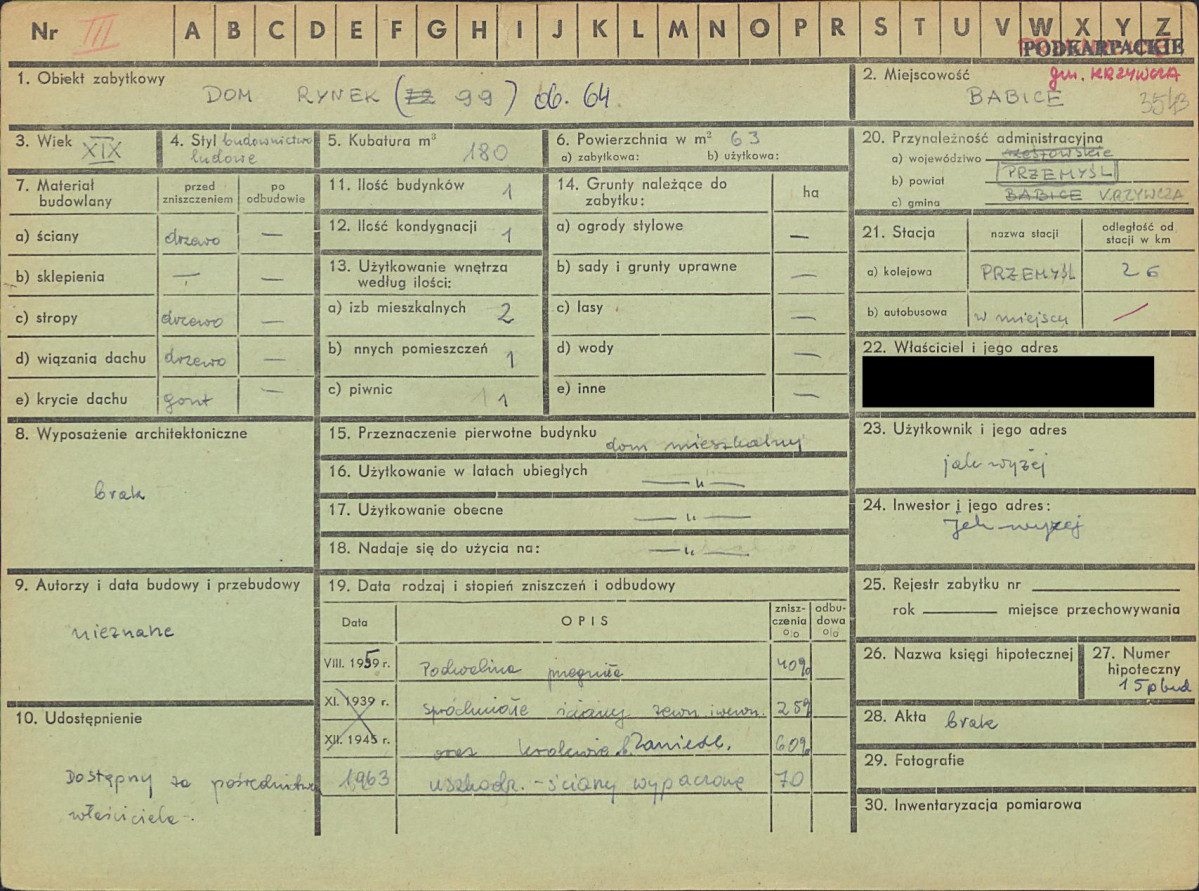 Nr III A B C D E F G H I J K L M N O P R S T U V W X Y Z
PODKARPACKIE
1. Obiekt zabytkowy
DOM RYNEK ( 99) ob. 64
2. Miejscowość gm. KRZYWCZA
BABICE
3. Wiek XIX
4. Styl budownictwo
ludowe
5. Kubatura m³
180
6. Powierzchnia w m² 63
a) zabytkowa: b) użytkowa:
20. Przynależność administracyjna
a) województwo rzeszowskie
b) powiat PRZEMYŚL
c) gmina BABICE KRZYWCZA
7. Materiał
budowlany
przed
zniszczeniem
po
odbudowie
a) ściany drzewo —
b) sklepienia — —
c) stropy drzewo —
d) wiązania dachu drzewo —
e) krycie dachu gont —
11. Ilość budynków 1
12. Ilość kondygnacji 1
13. Użytkowanie wnętrza
według ilości:
a) izb mieszkalnych 2
b) nnych pomieszczeń 1
c) piwnic 1
14. Grunty należące do
zabytku:
ha
a) ogrody stylowe —
b) sady i grunty uprawne —
c) lasy —
d) wody —
e) inne —
21. Stacja
nazwa stacji
odległość od
stacji w km
a) kolejowa PRZEMYŚL 26
b) autobusowa w miejscu
22. Właściciel i jego adres
8. Wyposażenie architektoniczne
brak
15. Przeznaczenie pierwotne budynku dom mieszkalny
16. Użytkowanie w latach ubiegłych — „ —
17. Użytkowanie obecne — „ —
18. Nadaje się do użycia na: — „ —
23. Użytkownik i jego adres
jak wyżej
24. Inwestor i jego adres:
jak wyżej
9. Autorzy i data budowy i przebudowy
nieznane
10. Udostępnienie
Dostępny za pośrednictwem
właściciela.
19. Data rodzaj i stopień zniszczeń i odbudowy
Data
OPIS
znisz-
czenia
o/o
odbu-
dowa
o/o
VIII. 1959 r. Podwalina przegniła 40%
XI. 1939 r. spróchniałe ściany zewn. i wewn. 25%
XII. 1945 r. oraz 60%
1963 uszkodz. - ściany wypaczone 70
25. Rejestr zabytku nr
rok miejsce przechowywania
26. Nazwa księgi hipotecznej
27. Numer
hipoteczny
15 p bud
28. Akta brak
29. Fotografie
30. Inwentaryzacja pomiarowa